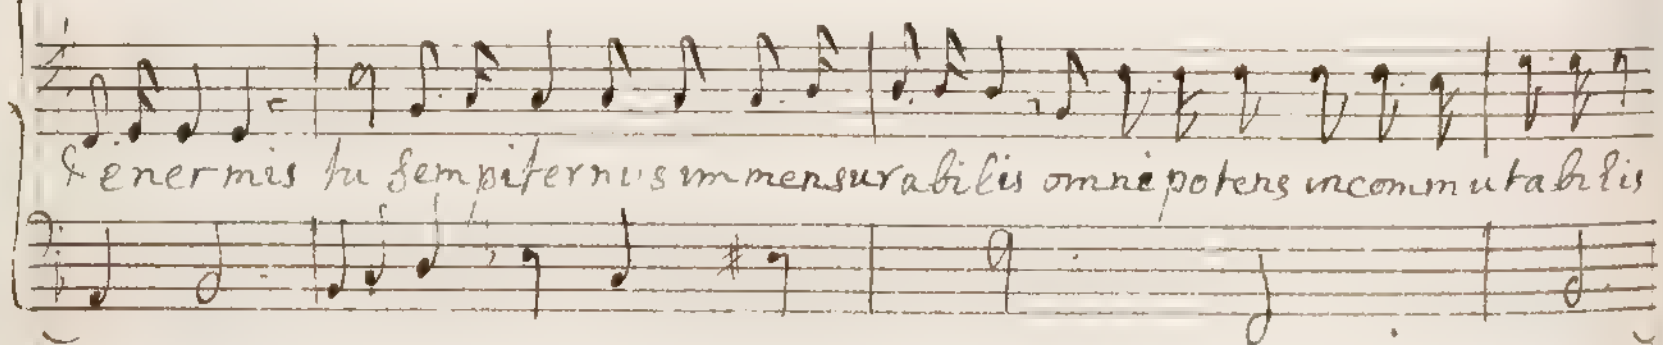 et enermis tu sempiternus immensurabilis omnipotens incommutabilis